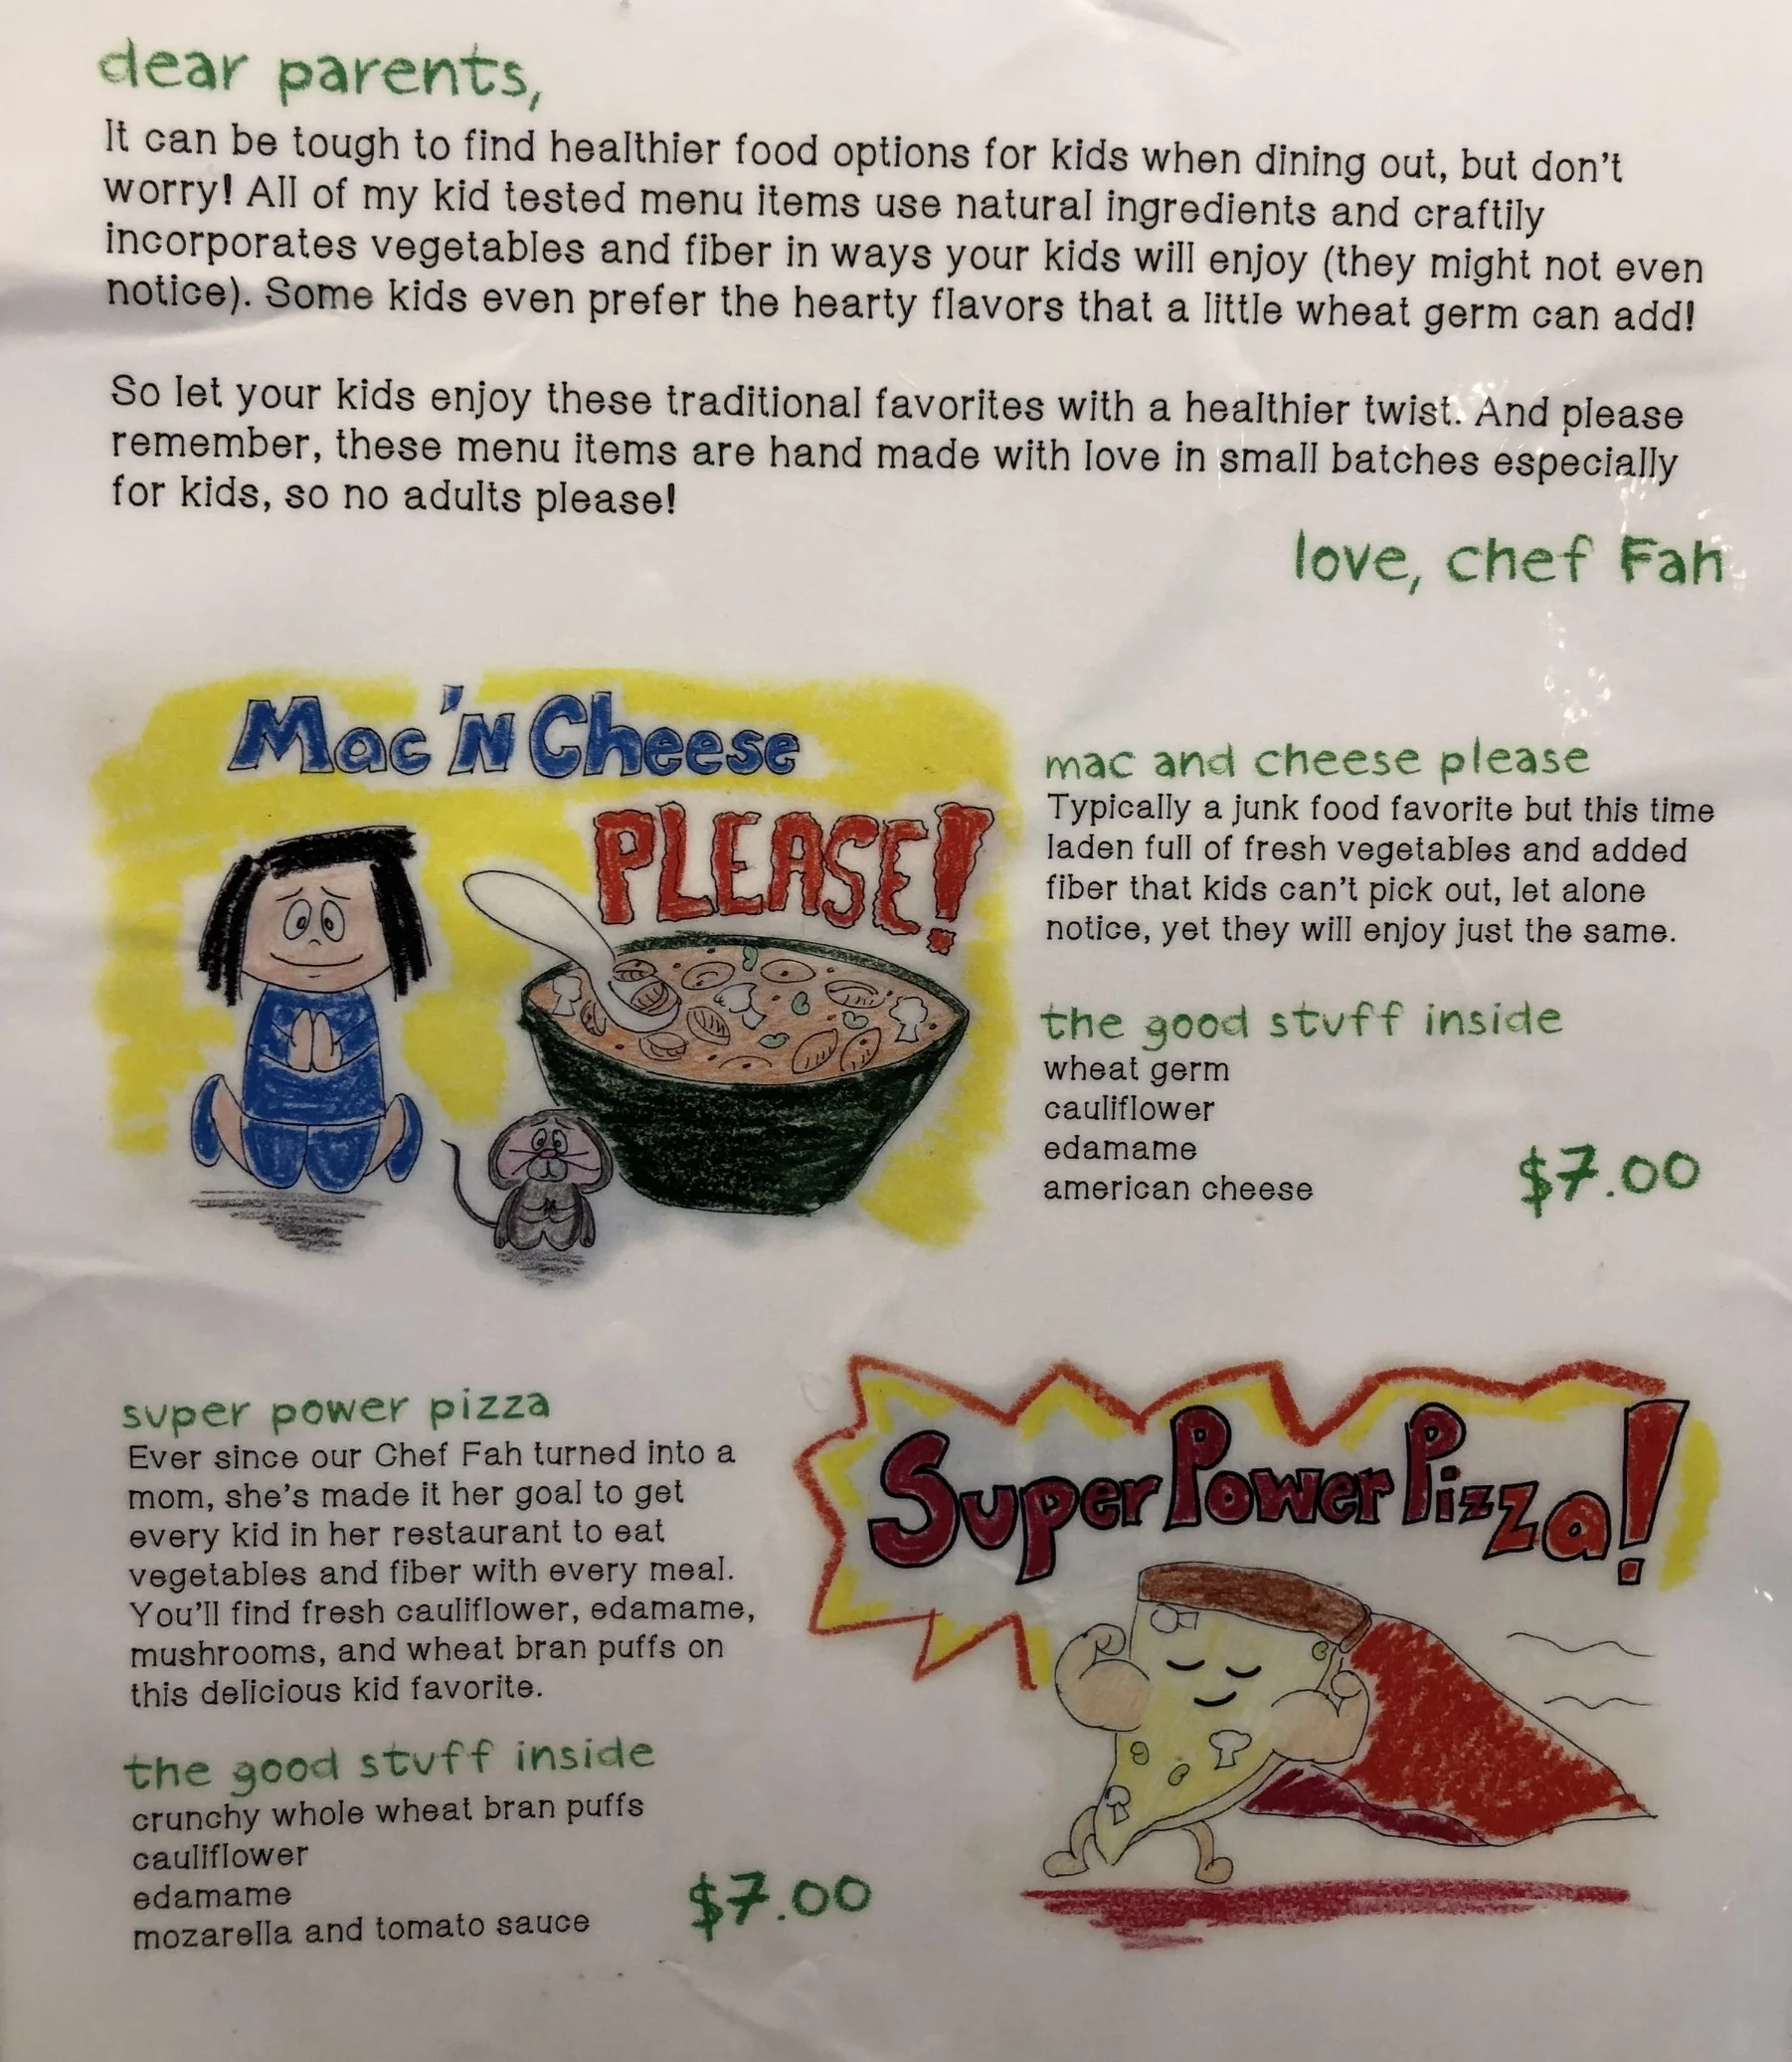 dear parents,
It can be tough to find healthier food options for kids when dining out, but don't
worry! All of my kid tested menu items use natural ingredients and craftily
incorporates vegetables and fiber in ways your kids will enjoy (they might not even
notice). Some kids even prefer the hearty flavors that a little wheat germ can add!
So let your kids enjoy these traditional favorites with a healthier twist. And please
remember, these menu items are hand made with love in small batches especially
for kids, so no adults please!
love, chef Fah
Mac 'N Cheese
PLEASE!
mac and cheese please
Typically a junk food favorite but this time
laden full of fresh vegetables and added
fiber that kids can't pick out, let alone
notice, yet they will enjoy just the same.
the good stuff inside
wheat germ
cauliflower
edamame
american cheese
$7.00
super power pizza
Ever since our Chef Fah turned into a
mom, she's made it her goal to get
every kid in her restaurant to eat
vegetables and fiber with every meal.
You'll find fresh cauliflower, edamame,
mushrooms, and wheat bran puffs on
this delicious kid favorite.
the good stuff inside
crunchy whole wheat bran puffs
cauliflower
edamame
mozarella and tomato sauce
$7.00
Super Power Pizza!